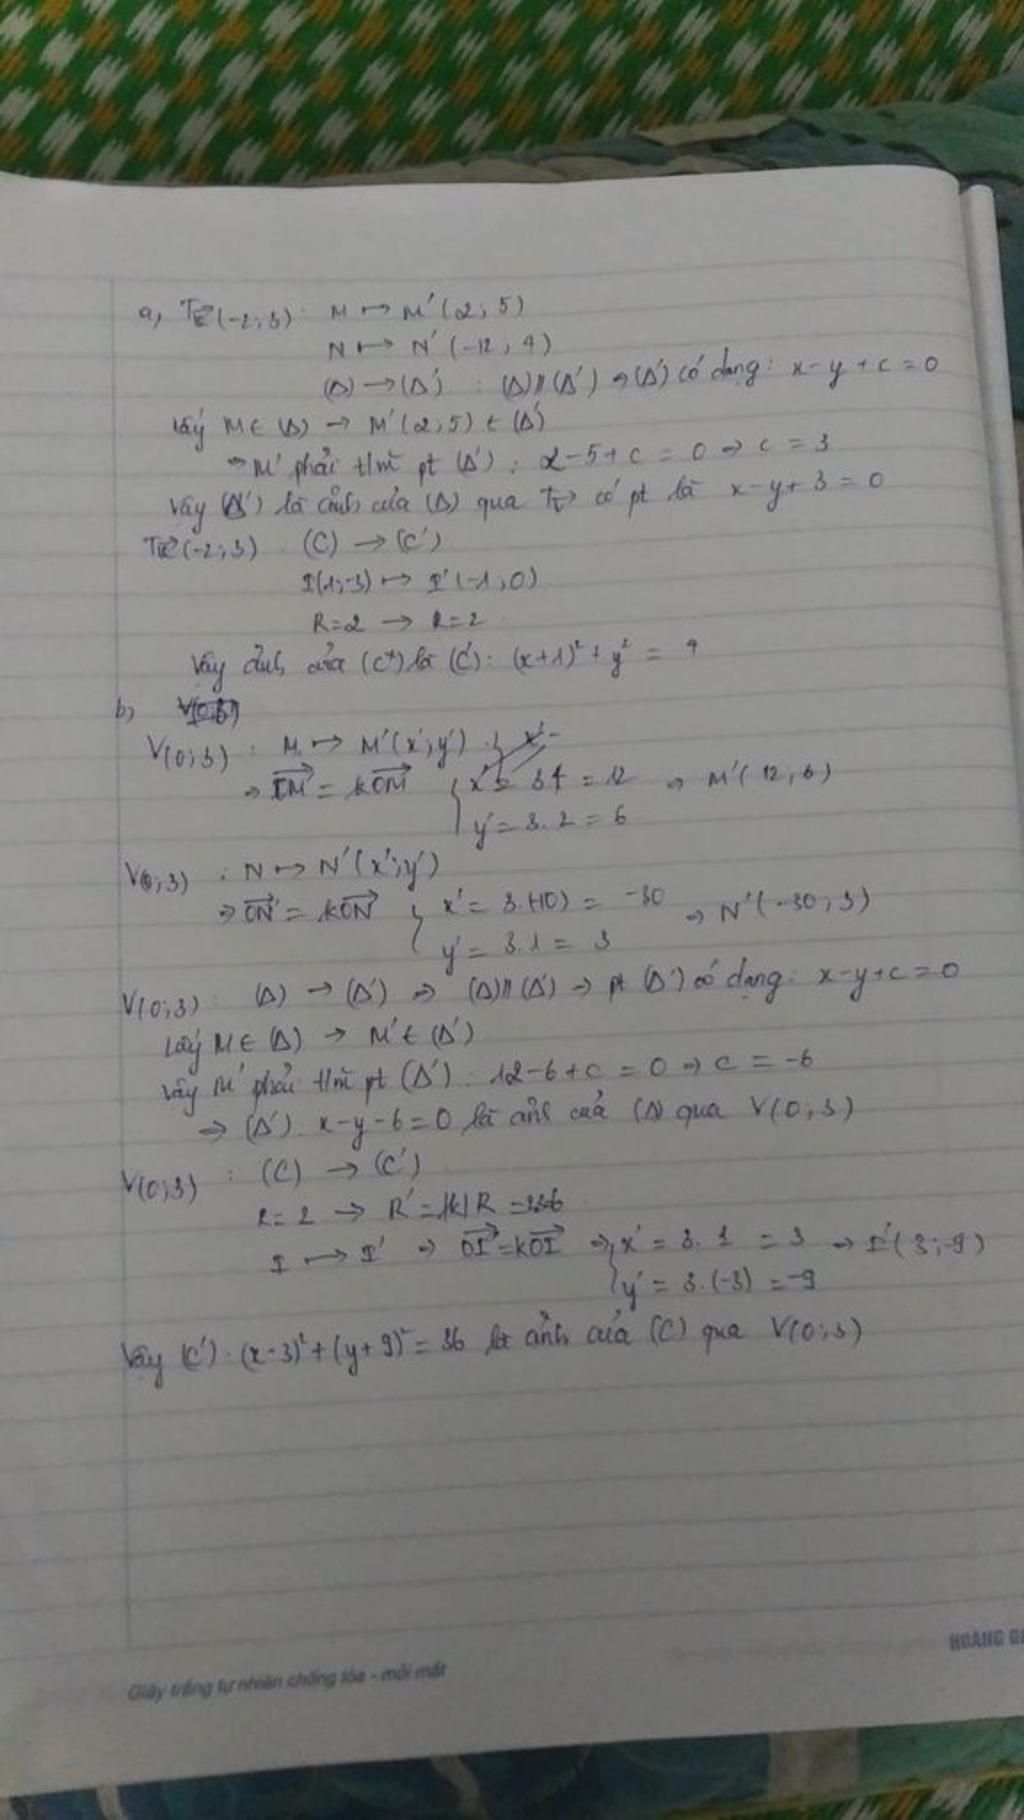 a, T_v→(-2;3) : M ↦ M'(2;5)
N ↦ N'(-12;4)
(Δ) → (Δ') : (Δ)//(Δ') ⇒ (Δ') có dạng: x-y+c=0
Lấy M ∈ (Δ) → M'(2;5) ∈ (Δ')
⇒ M' phải t/mãn pt (Δ') : 2-5+c = 0 ⇒ c = 3
Vậy (Δ') là ảnh của (Δ) qua T_v→ có pt là x-y+3=0
T_v→(-2;3) (C) → (C')
I(1;-3) ↦ I'(-1;0)
R=2 → R=2
Vậy ảnh của (C) là (C'): (x+1)² + y² = 4
b,
V(0;3) : M ↦ M'(x';y')
⇒ OM' = kOM { x' = 3.4 = 12 ⇒ M'(12;6)
y' = 3.2 = 6
V(0;3) : N ↦ N'(x';y')
⇒ ON' = kON { x' = 3.(-10) = -30 ⇒ N'(-30;3)
y' = 3.1 = 3
V(0;3) : (Δ) → (Δ') ⇒ (Δ)//(Δ') ⇒ pt (Δ') có dạng: x-y+c=0
Lấy M ∈ (Δ) → M' ∈ (Δ')
Vậy M' phải t/mãn pt (Δ') : 12-6+c = 0 ⇒ c = -6
⇒ (Δ') : x-y-6=0 là ảnh của (Δ) qua V(0;3)
V(0;3) : (C) → (C')
R=2 → R' = |k|R =
I ↦ I' ⇒ OI' = kOI ⇒ { x' = 3.1 = 3 ⇒ I'(3;-9)
y' = 3.(-3) = -9
Vậy (C') : (x-3)² + (y+9)² = 36 là ảnh của (C) qua V(0;3)
Giấy trắng tự nhiên chống lóa - mỏi mắt
HOÀNG